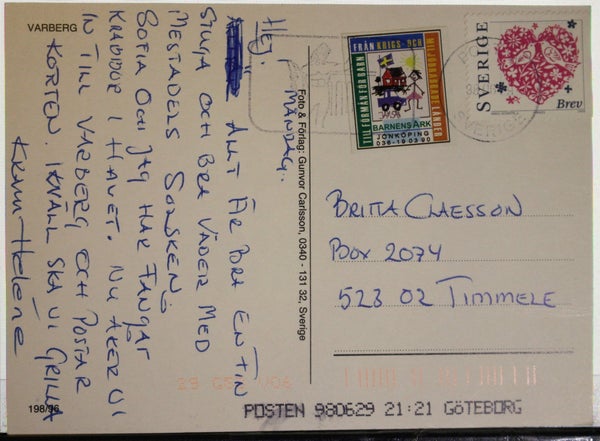 VARBERG
HEJ. MÅNDAG.
ALLT ÄR BRA. EN FIN
STUGA OCH BRA VÄDER MED
MESTADELS SOLSKEN.
SOFIA OCH JAG HAR FÅNGAT
KRABBOR I HAVET. NU ÅKER VI
IN TILL VARBERG OCH POSTAR
KORTEN. IKVÄLL SKA VI GRILLA
KRAM Helene
198/96
Foto & Förlag: Gunvor Carlsson, 0340 - 131 32, Sverige
TILL FÖRMÅN FÖR BARN
FRÅN KRIGS- OCH
MILJÖDRABBADE LÄNDER
BARNENS ARK
JÖNKÖPING
036-19 03 90
SVERIGE
Brev
SVERIGE
BRITTA CLAESSON
BOX 2074
523 02 TIMMELE
POSTEN 980629 21:21 GÖTEBORG